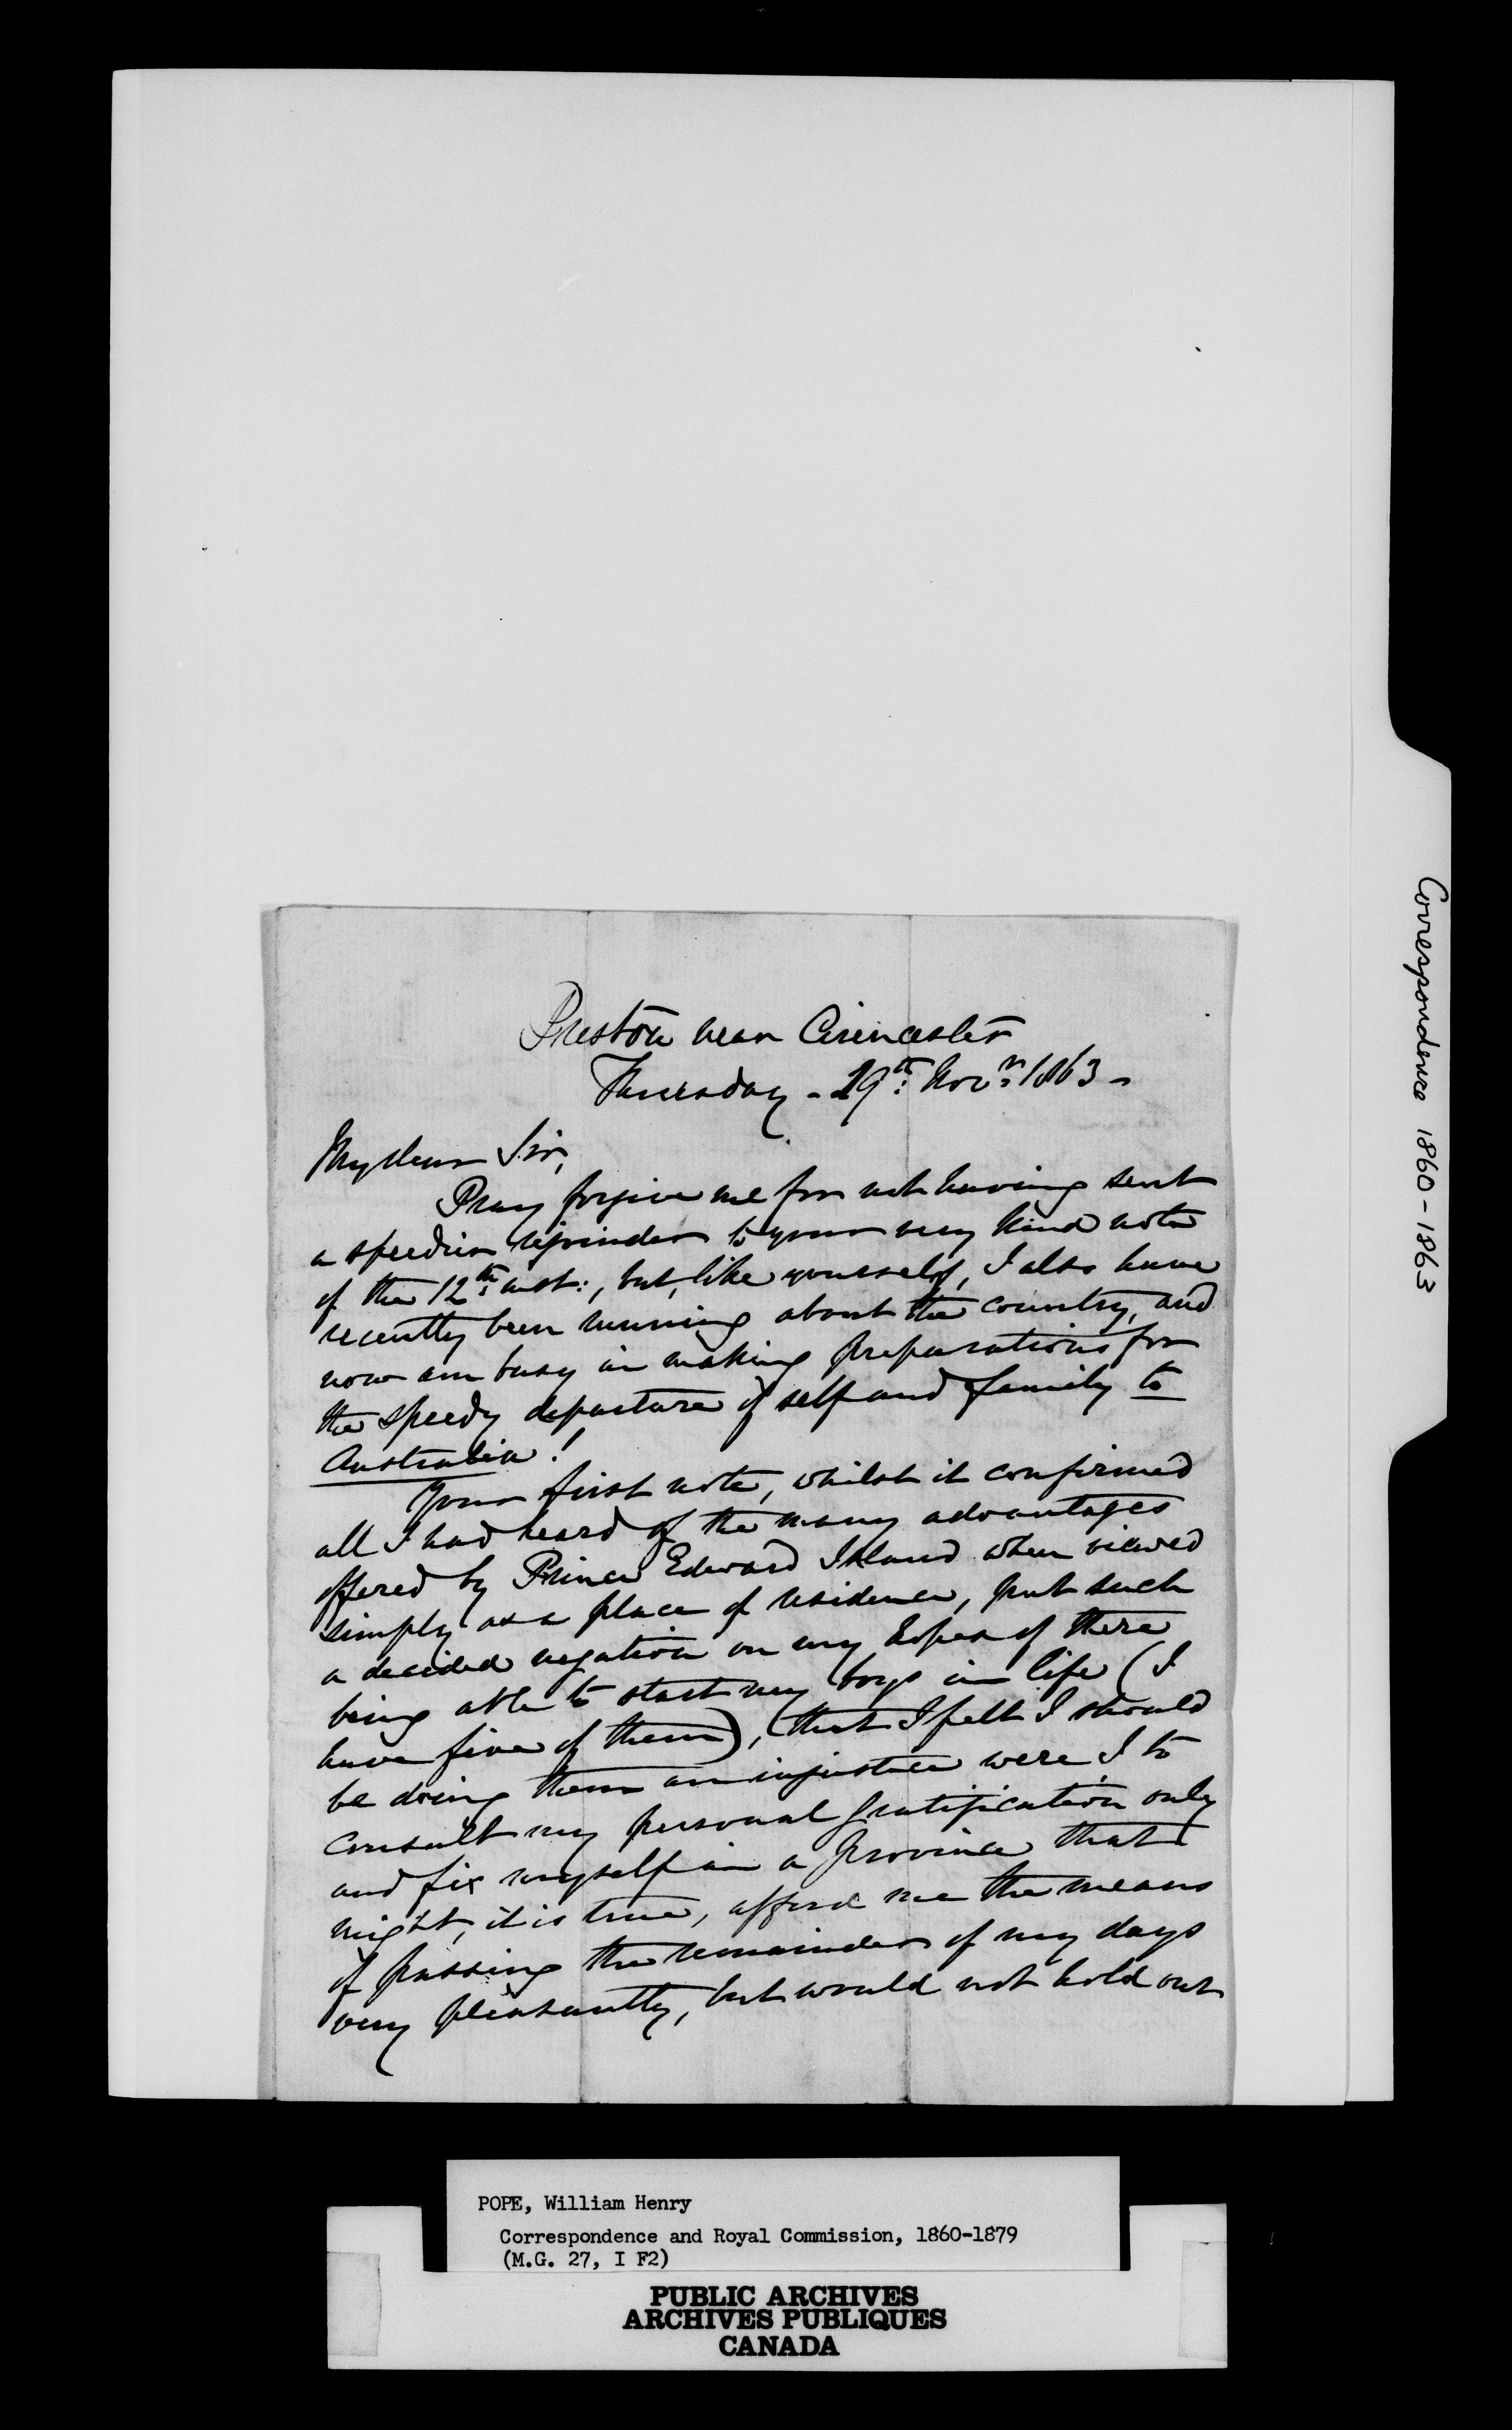 Correspondence 1860-1863
Preston near Cirencester
Thursday - 19th: Novr: 1863 -
My dear Sir,
Pray forgive me for not having sent
a speedier rejoinder to your very kind note
of the 12th: inst:, but, like yourself, I also have
recently been running about the country, and
now am busy in making preparations for
the speedy departure of self and family to
Australia!
Your first note, whilst it confirmed
all I had heard of the many advantages
offered by Prince Edward Island when viewed
simply as a place of residence, put such
a decided negation on my hopes of there
being able to start my boys in life (I
have five of them), that I felt I should
be doing them an injustice were I to
consult my personal gratification only
and fix myself in a province that
might, it is true, afford me the means
of passing the remainder of my days
very pleasantly, but would not hold out
POPE, William Henry
Correspondence and Royal Commission, 1860-1879
(M.G. 27, I F2)
PUBLIC ARCHIVES
ARCHIVES PUBLIQUES
CANADA